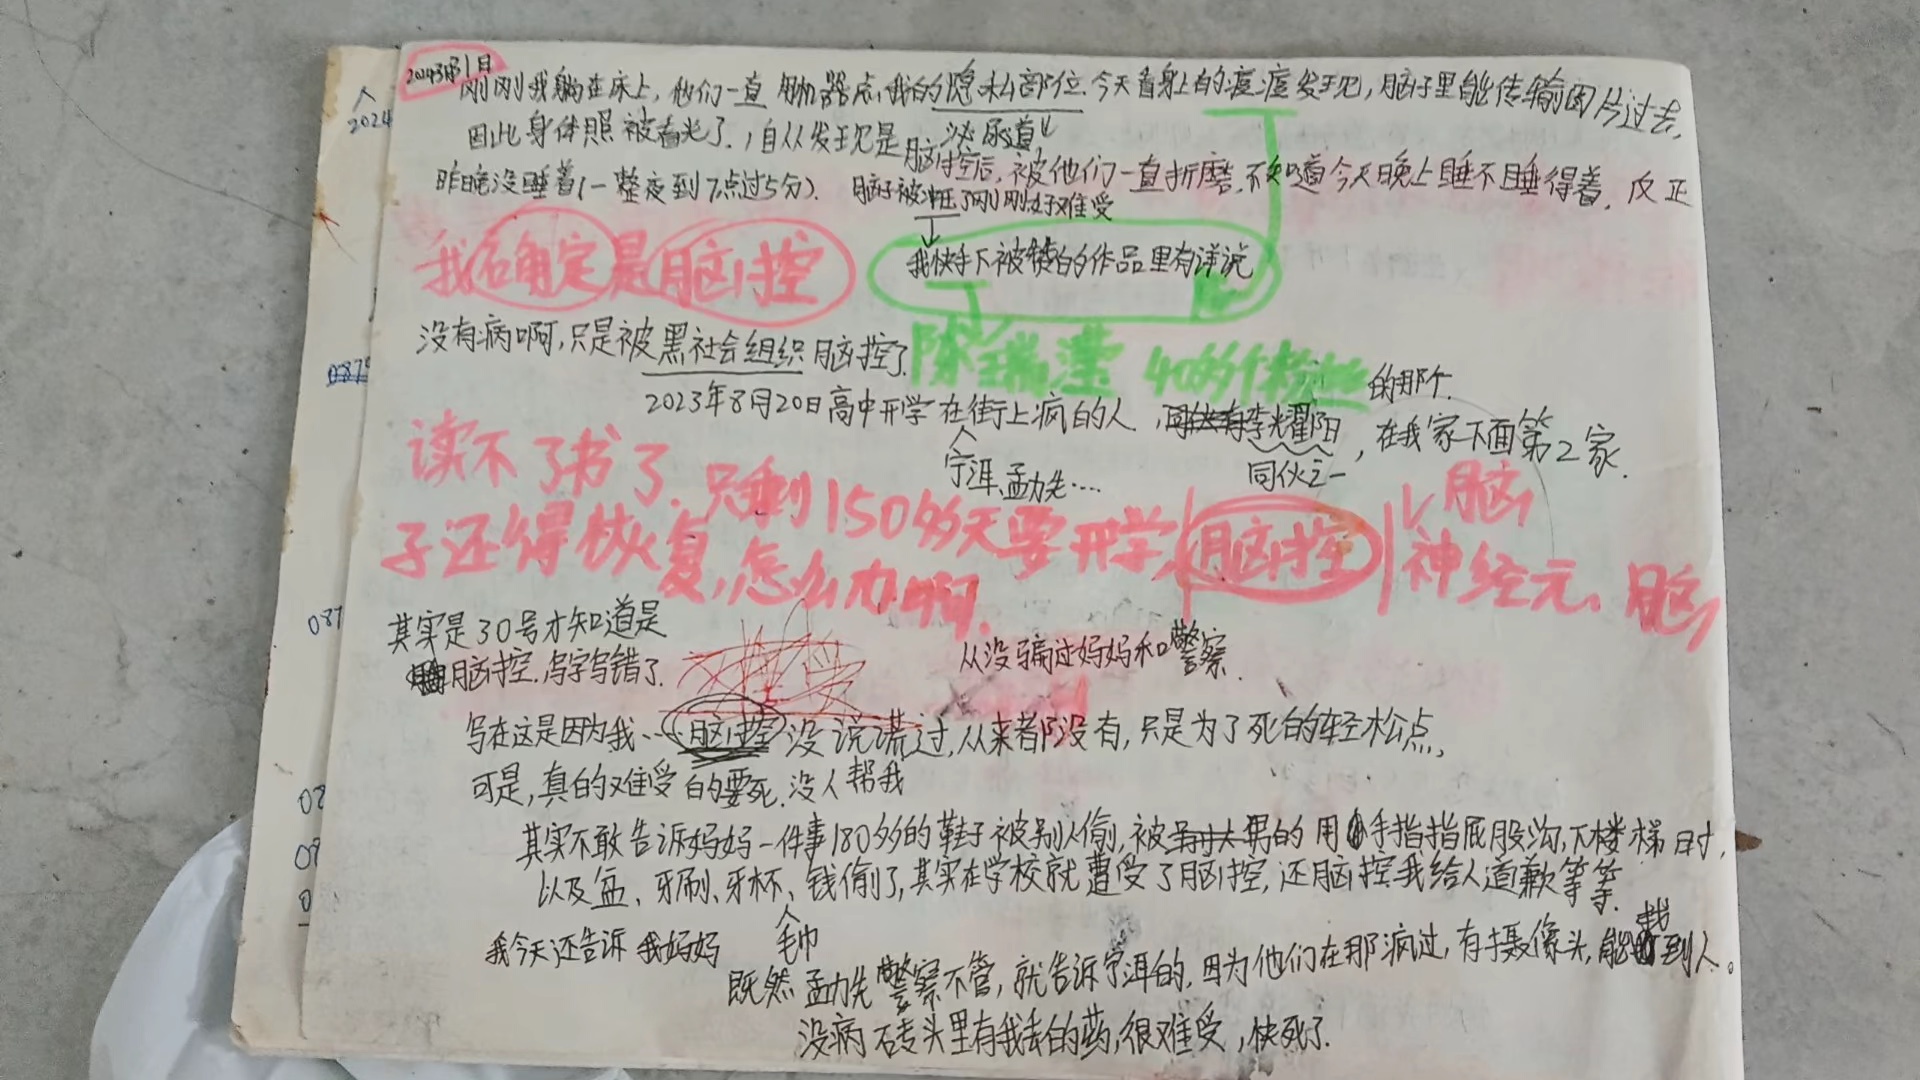 2024年3月31日
刚刚我躺在床上，他们一直用机器点我的隐私部位.今天看身上的痘痘发现，脑子里能传输图片过去，
泌尿道
因此身体照被看光了.，自从发现是脑控后，被他们一直折磨.不知道今天晚上睡不睡得着.反正
昨晚没睡着(一整夜到7点过5分).脑子被冲压了刚刚好难受
人
2024
我确定是脑控
我快手下被赞的作品里有详说
没有病啊，只是被黑社会组织脑控了.
陈瑞滢 40多个粉丝
的那个.
2023年8月20日高中开学在街上疯的人，李耀阳，在我家下面第2家.
人
宁洱、孟力先…
同伙之一
读不了书了.只剩150多天要开学，脑控
脑
子还得恢复，怎么办啊.
神经元、脑
其实是30号才知道是
脑控.写字写错了.
从没骗过妈妈和警察.
写在这是因为我…脑控没说谎过，从来都没有，只是为了死的轻松点，
可是，真的难受的要死.没人帮我
其实不敢告诉妈妈一件事180多的鞋子被别人偷，被男的用手指指屁股沟，下楼梯时，
以及盆、牙刷、牙杯、钱偷了，其实在学校就遭受了脑控，还脑控我给人道歉等等.
人
毛巾
我今天还告诉我妈妈
既然孟力先警察不管，就告诉宁洱的，因为他们在那疯过，有摄像头，能找到人。
没病砖头里有我丢的药，很难受，快死了.
087